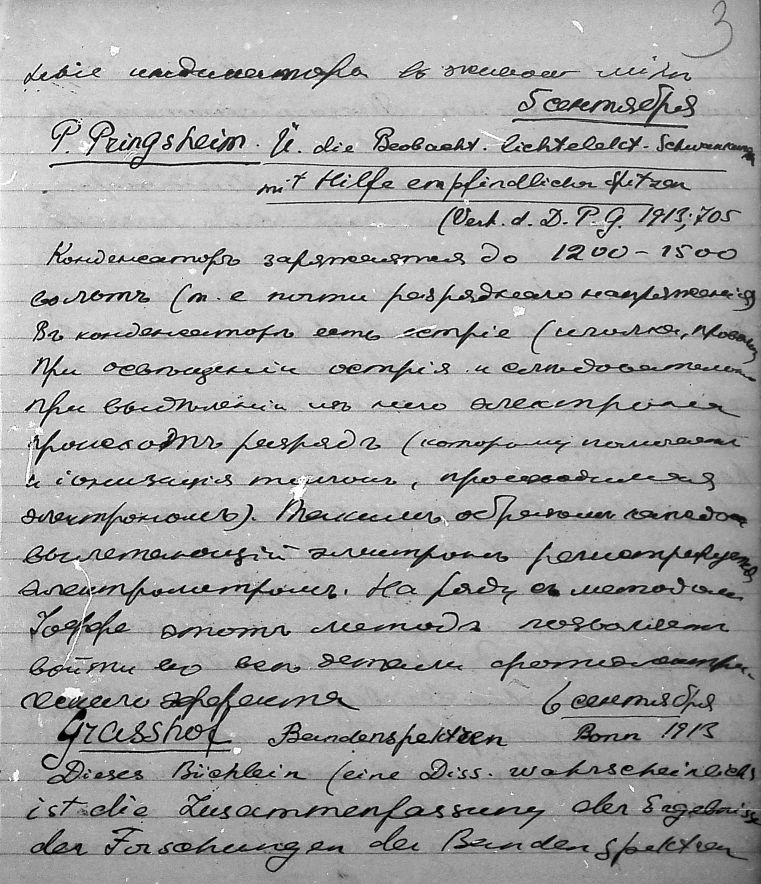 3
индикатора въ
5 сентября
P. Pringsheim. Ü. die Beobacht. lichtelekt. Schwankungen
mit Hilfe empfindlicher Spitzen
(Verh. d. D. P. G. 1913; 705
Конденсаторъ заряжается до 1200 – 1500
вольтъ (т. е почти разряднаго напряженія)
Въ конденсаторѣ есть остріе (иголка,
При освѣщеніи острія и слѣдовательно
при выдѣленіи изъ него электрона
происходитъ разрядъ (которому помогаетъ
и іонизація толчком, производимая
электрономъ). Такимъ образомъ каждый
вылетающій электронъ регистрируется
электрометромъ. На ряду съ методом
Іоффе этотъ методъ позволяетъ
войти во всѣ детали фотоэлектри-
ческаго эффекта
6 сентября
Grasshof Bandenspektren Bonn 1913
Dieses Büchlein (eine Diss. wahrscheinlich)
ist die Zusammenfassung der Ergebnisse
der Forschungen der Bandenspektren